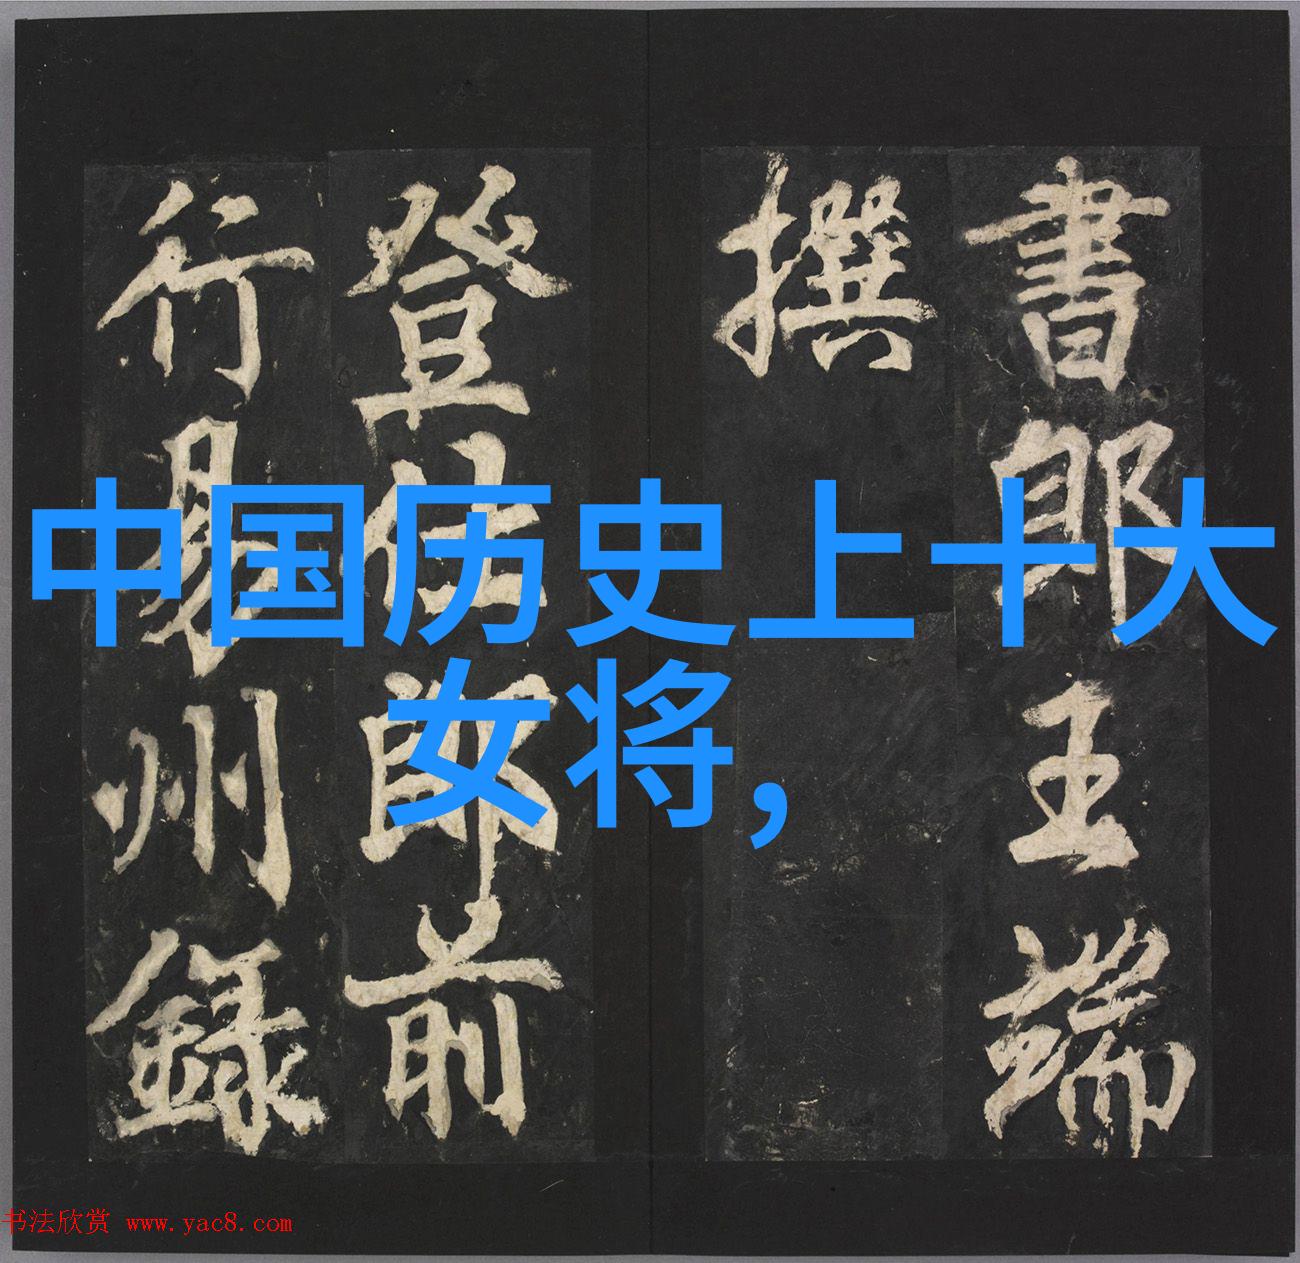 書郎王端
撰
登仕郎前
行易州録
中国历史上十大
女将，
书法欣赏 www.yac8.com